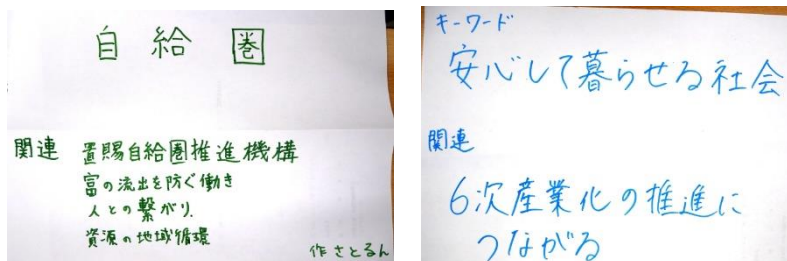 自給圏
関連 置賜自給圏推進機構
富の流出を防ぐ働き
人との繋がり.
資源の地域循環
作さとるん
キーワード
安心して暮らせる社会
関連
6次産業化の推進に
つながる